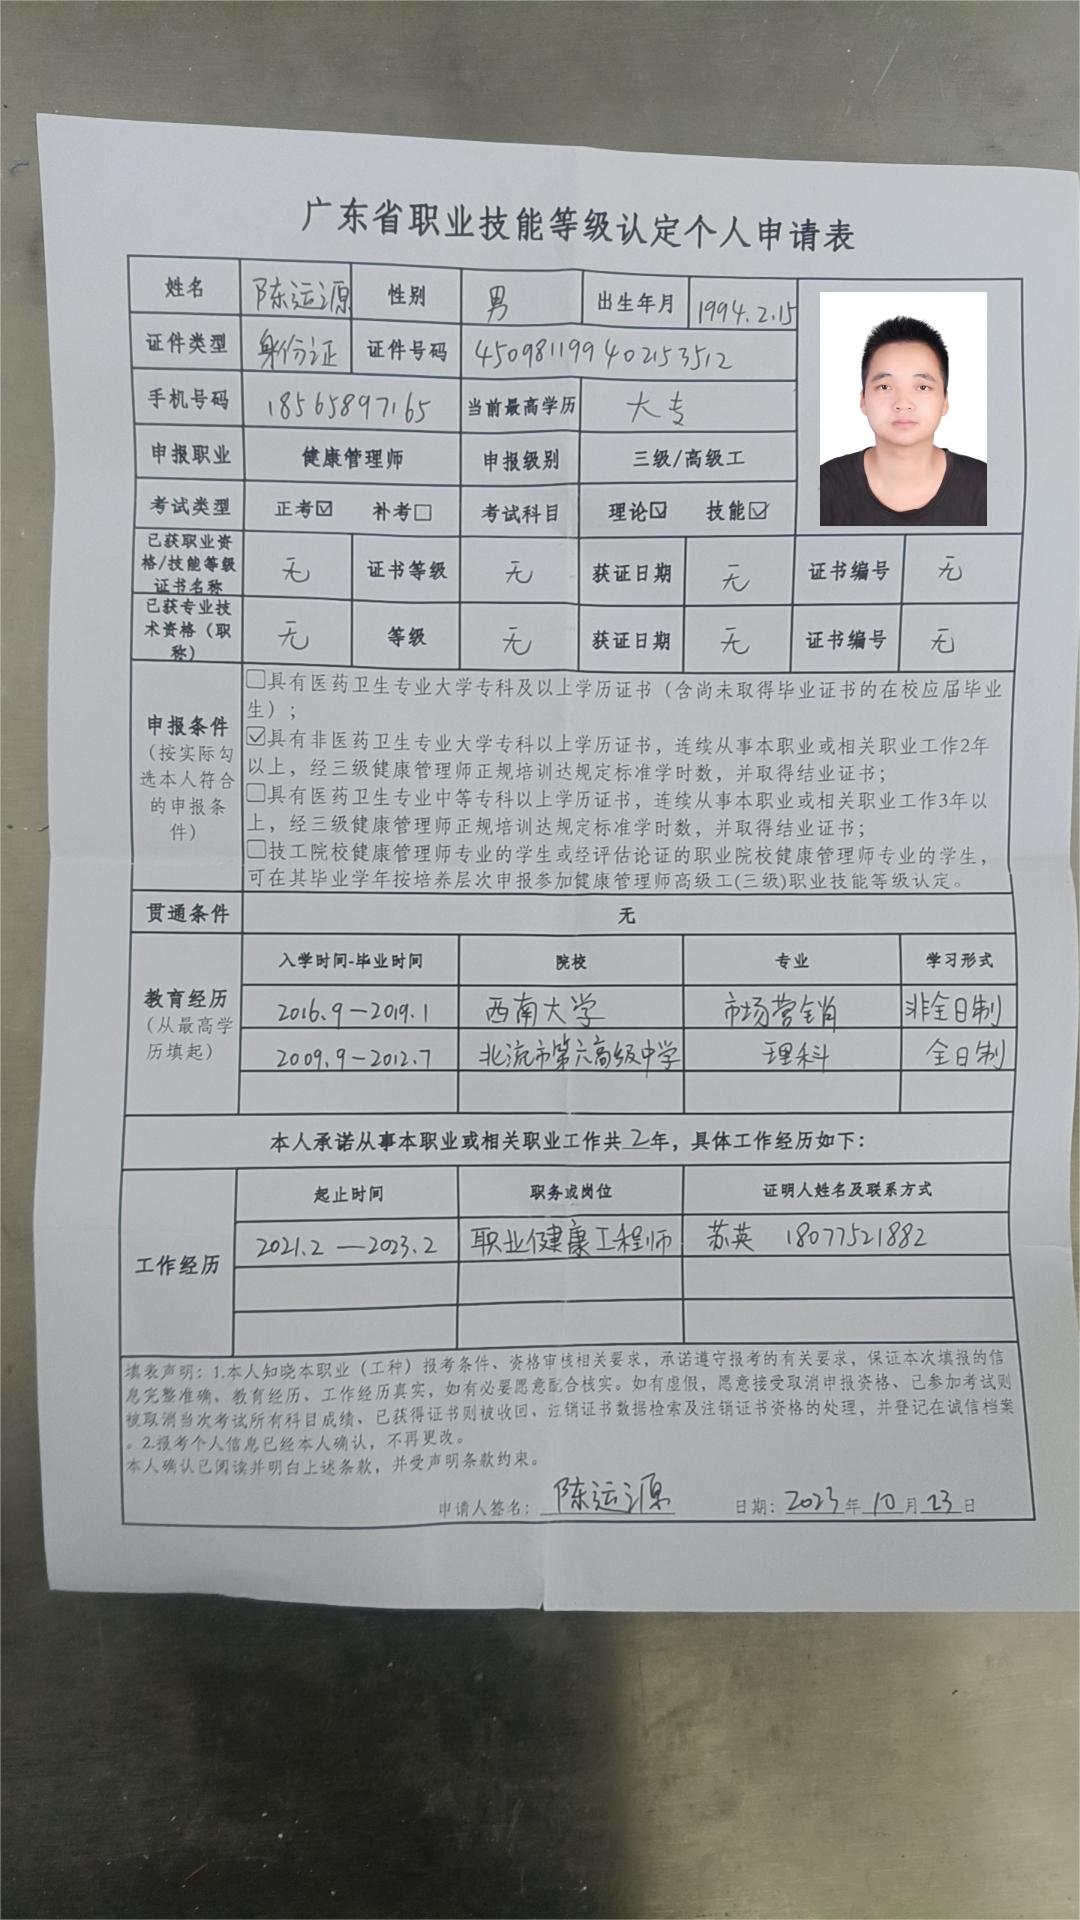 广东省职业技能等级认定个人申请表
姓名 陈运源 性别 男 出生年月 1994.2.15
证件类型 身份证 证件号码 450981199402153512
手机号码 18565897165 当前最高学历 大专
申报职业 健康管理师 申报级别 三级/高级工
考试类型 正考☑ 补考□ 考试科目 理论☑ 技能☑
已获职业资格/技能等级证书名称 无 证书等级 无 获证日期 无 证书编号 无
已获专业技术资格（职称） 无 等级 无 获证日期 无 证书编号 无
申报条件
（按实际勾选本人符合的申报条件）
□具有医药卫生专业大学专科及以上学历证书（含尚未取得毕业证书的在校应届毕业
生）；
☑具有非医药卫生专业大学专科以上学历证书，连续从事本职业或相关职业工作2年
以上，经三级健康管理师正规培训达规定标准学时数，并取得结业证书；
□具有医药卫生专业中等专科以上学历证书，连续从事本职业或相关职业工作3年以
上，经三级健康管理师正规培训达规定标准学时数，并取得结业证书；
□技工院校健康管理师专业的学生或经评估论证的职业院校健康管理师专业的学生，
可在其毕业学年按培养层次申报参加健康管理师高级工(三级)职业技能等级认定。
贯通条件 无
教育经历
（从最高学历填起）
入学时间-毕业时间 院校 专业 学习形式
2016.9－2019.1 西南大学 市场营销 非全日制
2009.9－2012.7 北流市第六高级中学 理科 全日制
本人承诺从事本职业或相关职业工作共2年，具体工作经历如下：
工作经历
起止时间 职务或岗位 证明人姓名及联系方式
2021.2 —2023.2 职业健康工程师 苏英 18077521882
填表声明：1.本人知晓本职业（工种）报考条件、资格审核相关要求，承诺遵守报考的有关要求，保证本次填报的信
息完整准确、教育经历、工作经历真实，如有必要愿意配合核实。如有虚假，愿意接受取消申报资格、已参加考试则
被取消当次考试所有科目成绩、已获得证书则被收回、注销证书数据检索及注销证书资格的处理，并登记在诚信档案
。2.报考个人信息已经本人确认，不再更改。
本人确认已阅读并明白上述条款，并受声明条款约束。
申请人签名：陈运源 日期：2023年10月23日